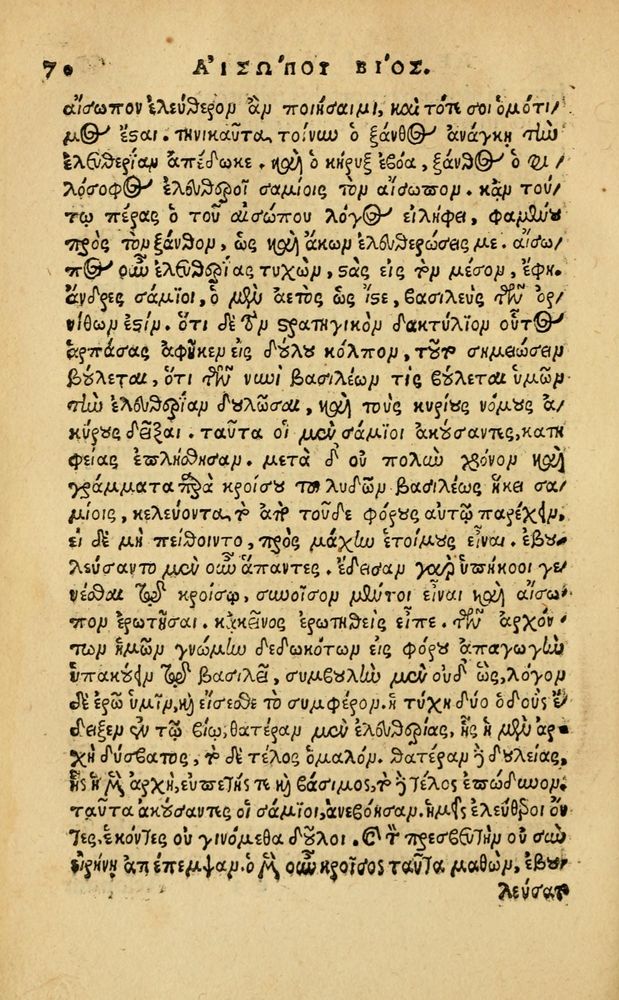 70 ΑἸΣΩ´ΠΟΥ ΒΙ´ΟΣ.
αἴσωπον ἐλεύθερον ἂν ποιήσαιμι, καὶ τότε σοι ὁμότι/
μος ἔσαι. τηνικαῦτα τοίνυν ὁ ξάνθος ἀνάγκῃ τὴν
ἐλευθερίαν ἀπέδωκε. καὶ ὁ κήρυξ ἐβόα, ξάνθος ὁ φι/
λόσοφος ἐλευθεροῖ σαμίοις τὸν αἴσωπον. κἂν τού/
τῳ πέρας ὁ τοῦ αἰσώπου λόγος εἴληφε, φαμένου
πρὸς τὸν ξάνθον, ὡς καὶ ἄκων ἐλευθερώσεις με. αἴσω/
πος οὖν ἐλευθερίας τυχὼν, στὰς εἰς τὸ μέσον, ἔφη.
ἄνδρες σάμιοι, ὁ μὲν ἀετὸς ὡς ἴστε, βασιλεὺς τῶν ὀρ/
νίθων ἐστίν. ὅτι δὲ τὸν στρατηγικὸν δακτύλιον οὗτος
ἁρπάσας ἀφῆκεν εἰς δούλου κόλπον, τοῦτο σημειώσειν
βούλεται, ὅτι τῶν νυνὶ βασιλέων τὶς βούλεται ὑμῶν
τὴν ἐλευθερίαν δουλῶσαι, καὶ τοὺς κυρίους νόμους ἀ/
κύρους δεῖξαι. ταῦτα οἱ μὲν σάμιοι ἀκούσαντες, κατη
φείας ἐπλήσθησαν. μετὰ δ οὐ πολὺν χρόνον καὶ
γράμματα παρὰ κροίσου τοῦ λυδῶν βασιλέως ἧκε σα/
μίοις, κελεύοντα, τὸ ἀπὸ τοῦδε φόρους αὐτῷ παρέχειν,
εἰ δὲ μὴ πείθοιντο, πρὸς μάχην ἑτοίμους εἶναι. ἐβου/
λεύσαντο μὲν οὖν ἅπαντες. ἔδεισαν γὰρ ὑπήκοοι γε/
νέσθαι τῷ κροίσῳ, συνοῖσον μέντοι εἶναι καὶ αἴσω/
πον ἐρωτῆσαι. κἀκεῖνος ἐρωτηθεὶς εἶπε. τῶν ἀρχόν/
των ἡμῶν γνώμην δεδωκότων εἰς φόρου ἀπαγωγὴν
ὑπακούειν τῷ βασιλεῖ, συμβουλὴν μὲν οὐδ ὣς, λόγον
δὲ ἐρῶ ὑμῖν, καὶ εἴσεσθε τὸ συμφέρον. ἡ τύχη δύο ὁδοὺς ἔ/
δειξεν ἐν τῷ βίῳ, θατέραν μὲν ἐλευθερίας, ἧς ἡ μὲν ἀρ/
χὴ δύσβατος, τὸ δὲ τέλος ὁμαλόν. θατέραν δὲ δουλείας,
ἧς ἡ μὲν ἀρχὴ, εὐπετής τε καὶ βάσιμος, τὸ δὲ τέλος ἐπώδυνον.
ταῦτα ἀκούσαντες οἱ σάμιοι, ἀνεβόησαν. ἡμεῖς ἐλεύθεροι ὄν
τες, ἑκόντες οὐ γινόμεθα δοῦλοι. καὶ τὸν πρεσβευτὴν οὐ σὺν
εἰρήνῃ ἀπέπεμψαν. ὁ μὲν οὖν κροῖσος ταῦτα μαθὼν, ἐβου/
λεύσατ